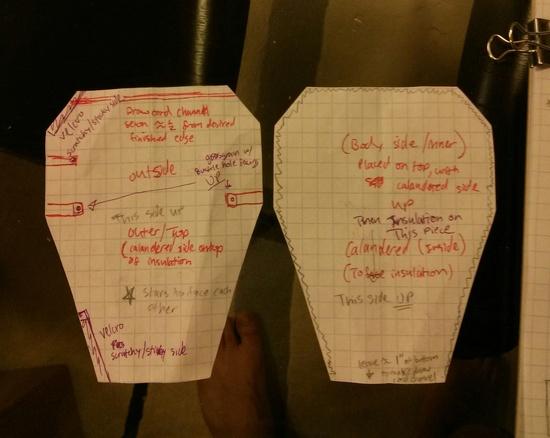 Draw cord channel
sewn ≈ ½ from desired
finished edge
velcro
scratchy/sticky side
outside
grosgrain w/
hole facing
UP
This side up
outer/Top
(calandered side on top
of insulation
☆ stars to face each
other
velcro
scratchy/sticky side
(Body side/inner)
placed on top, with
calandered side
up
Then Insulation on
This piece
Calandered (inside)
(To face insulation)
This side UP
leave ≈ 1" at bottom